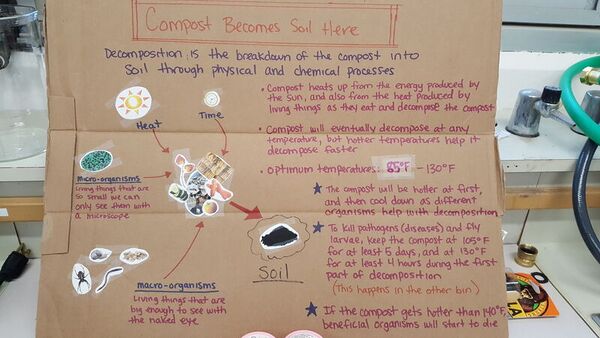 Compost Becomes Soil Here
Decomposition is the breakdown of the compost into
Soil through physical and chemical processes
Heat
Time
micro-organisms
Living things that are
so small we can
only see them with
a microscope
macro-organisms
Living things that are
big enough to see with
the naked eye
Soil
• Compost heats up from the energy produced by
the sun, and also from the heat produced by
living things as they eat and decompose the compost
• Compost will eventually decompose at any
temperature, but hotter temperatures help it
decompose faster
• Optimum temperatures: 85°F - 130°F
★ The compost will be hotter at first,
and then cool down as different
organisms help with decomposition.
★ To kill pathogens (diseases) and fly
larvae, keep the compost at 105°F
for at least 5 days, and at 130°F
for at least 4 hours during the first
part of decomposition
(This happens in the other bin)
★ If the compost gets hotter than 140°F,
beneficial organisms will start to die
LA